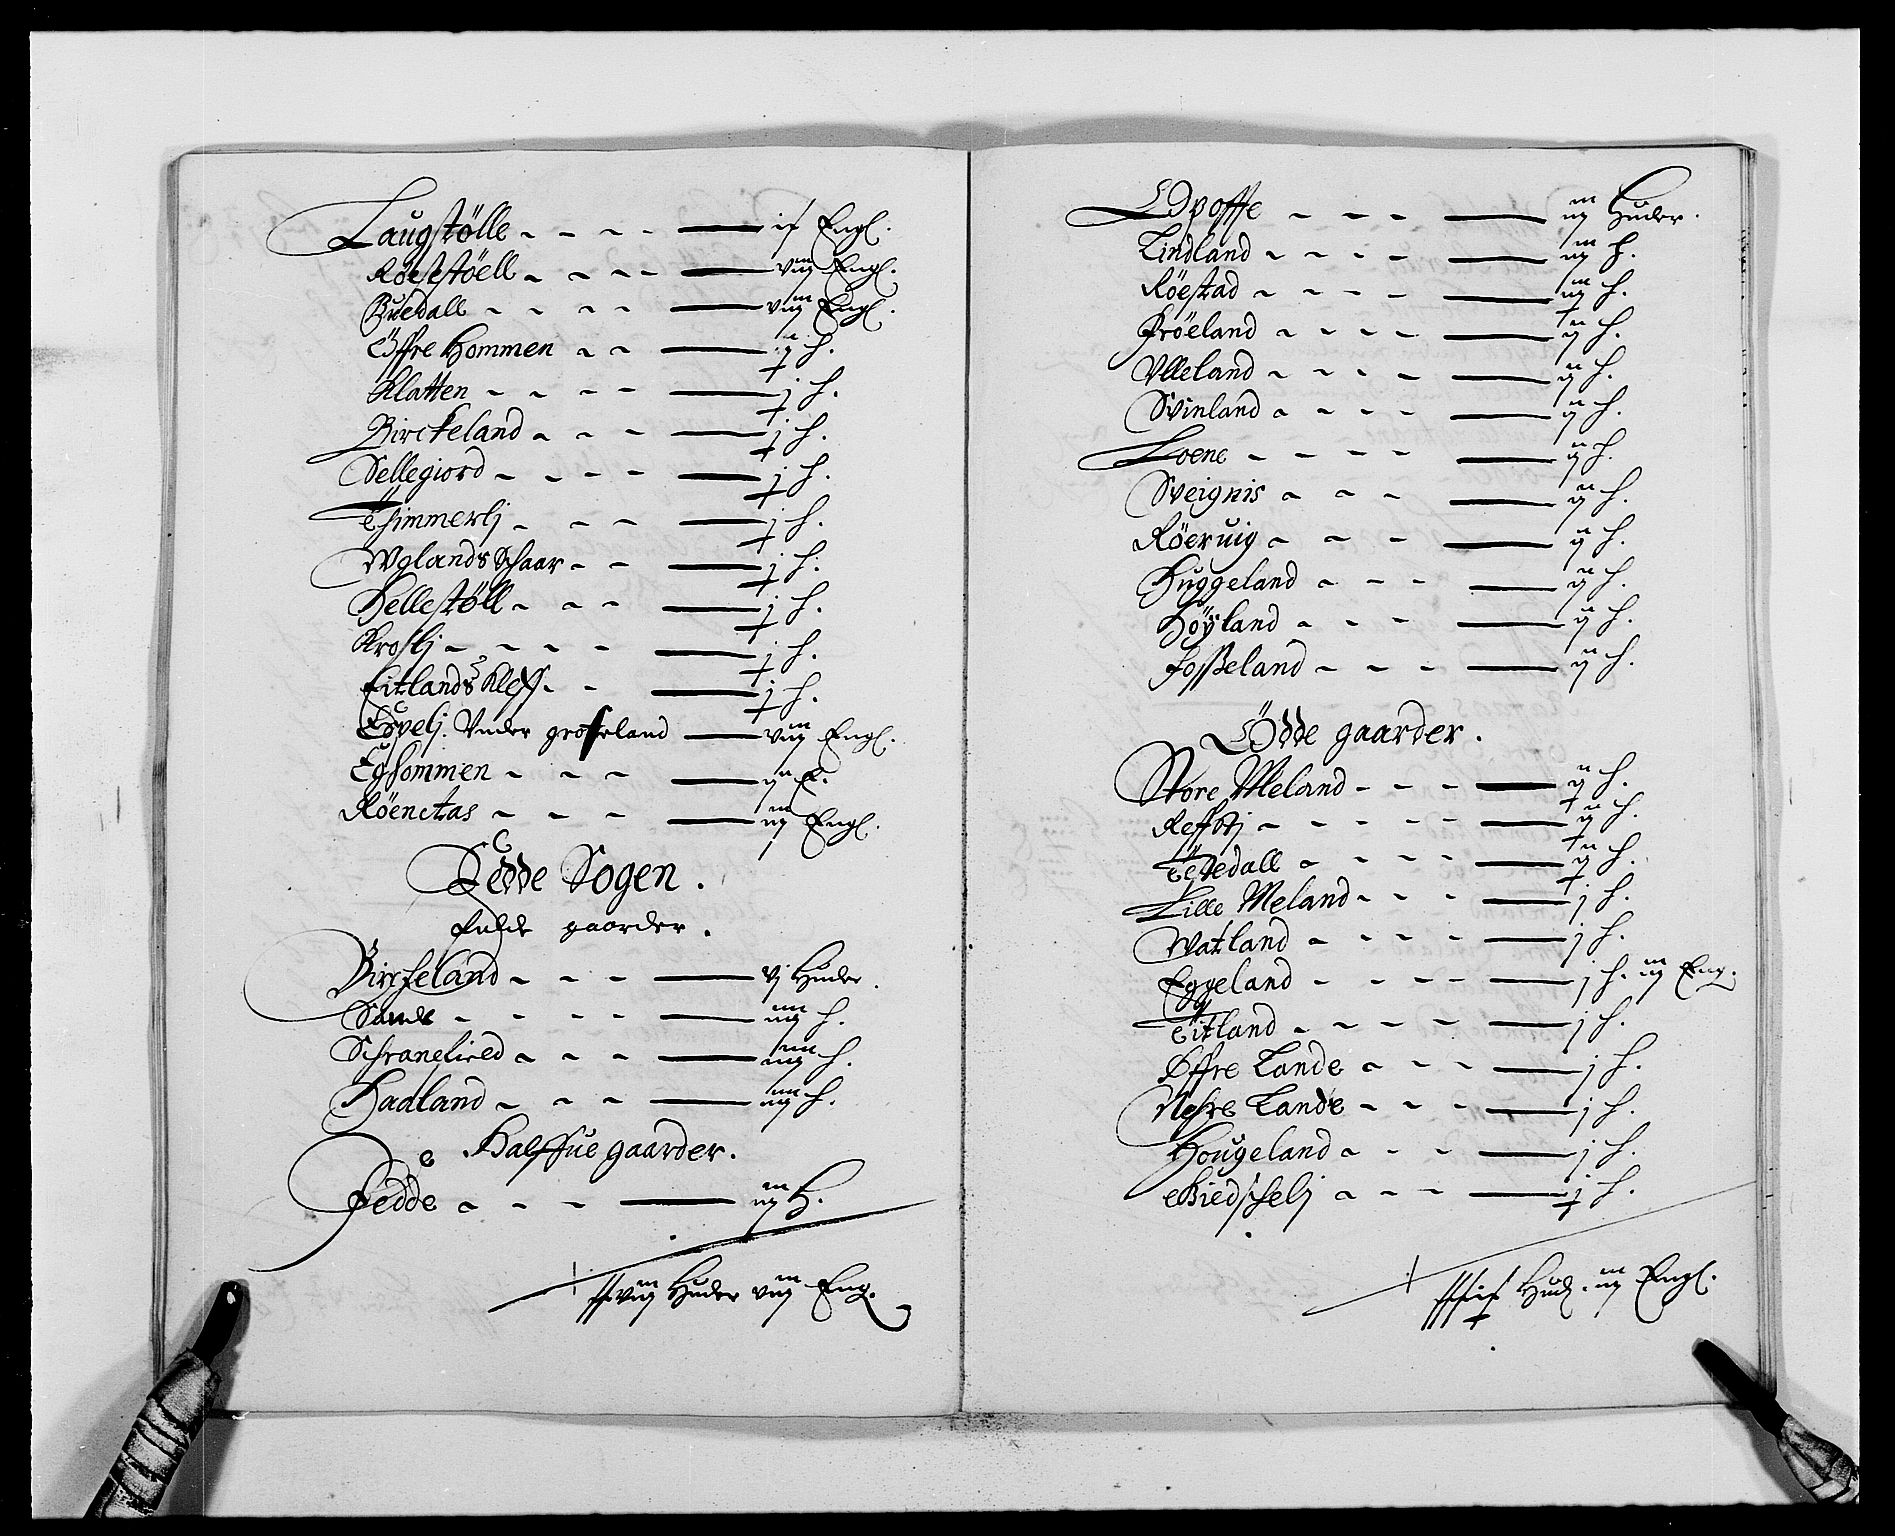 Laugstölle - - - - ix Engl.
Röestöell - - - - viij Engl.
Buedall - - - - viij Engl.
Öffre Hommen - - ij h.
Klatten - - - - j h.
Birckeland - - - - j h.
Sellegiord - - - - j h.
Thimmerlj - - - j h.
Wglands Schaar - - j h.
Hellestöll - - - j h.
Kroslj - - - - - j h.
Eitlands Kleff - - j h.
Under groseland viij Engl.
Eghommen - - - ij E.
Röenctas - - - iij Engl.
Fedde Sogen.
Fulde gaarder.
Birckeland - - - vj Huder.
Sande - - - - - iiij h.
Schranefield - - - iiij h.
Haaland - - - iiij h.
Halffue gaarder.
Fedde - - - iij H.
Huder viij Eng.
iij Huder.
Lindland - - - - iij h.
Röestad - - - - iij h.
Fröeland - - - - ij h.
Ulleland - - - - ij h.
Svinland - - - - ij h.
Loene - - - - ij h.
Sveignis - - - ij h.
Röeruig - - - ij h.
Huggeland - - - ij h.
Höyland - - - ij h.
Fosseland - - - ij h.
Ödde gaarder.
Store Meland - - - ij h.
Reffstj - - - - - ij h.
Tetedall - - - - ij h.
Lille Meland - - - j h.
Watland - - - - j h.
Eggeland - - - - j h. iij Eng.
Eitland - - - - j h.
Øffre Lande - - - j h.
Nehre Lande - - - j h.
Hougeland - - - j h.
Biedschelj - - - j h.
Hud. iij Engl.